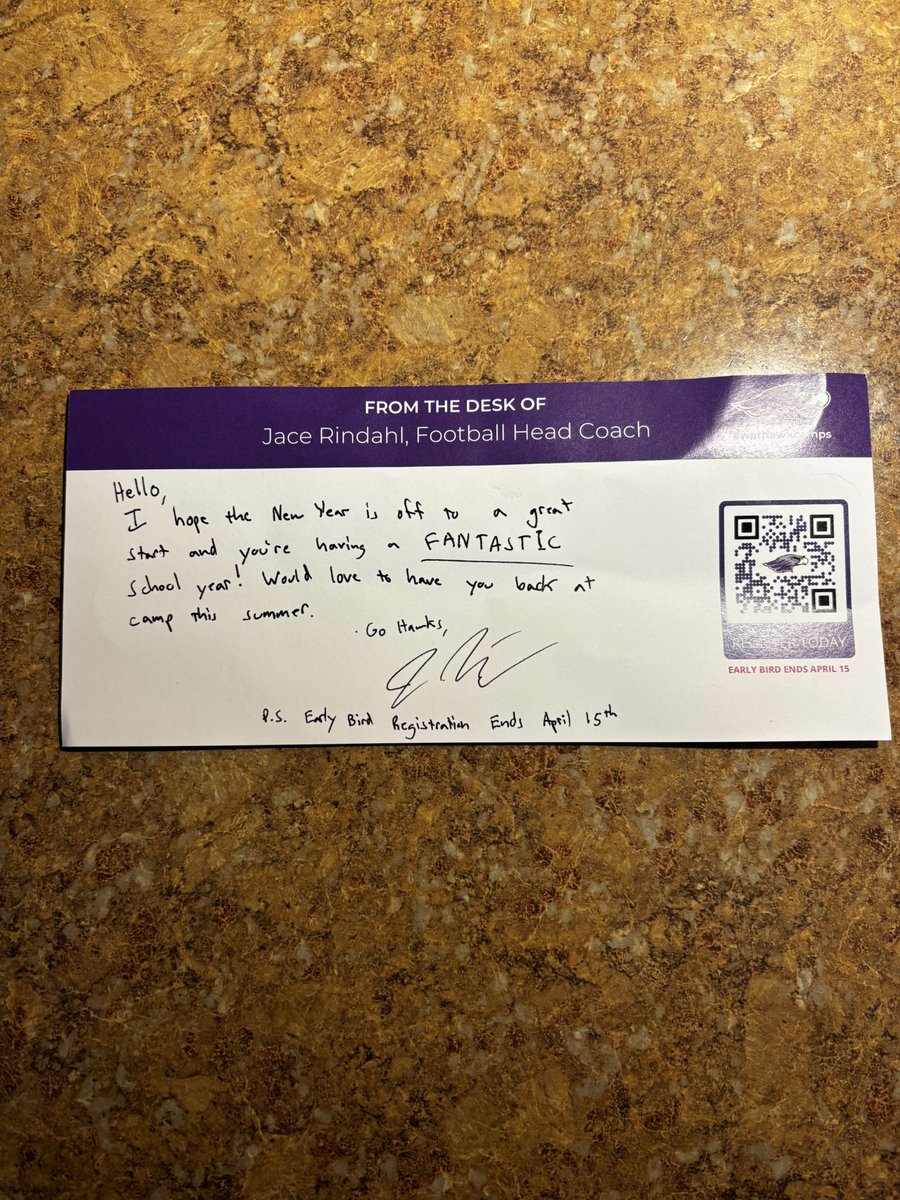 FROM THE DESK OF
Jace Rindahl, Football Head Coach
Hello,
I hope the New Year is off to a great
start and you're having a FANTASTIC
school year! Would love to have you back at
camp this summer.
Go Hawks,
P.S. Early Bird Registration Ends April 15th
TODAY
EARLY BIRD ENDS APRIL 15